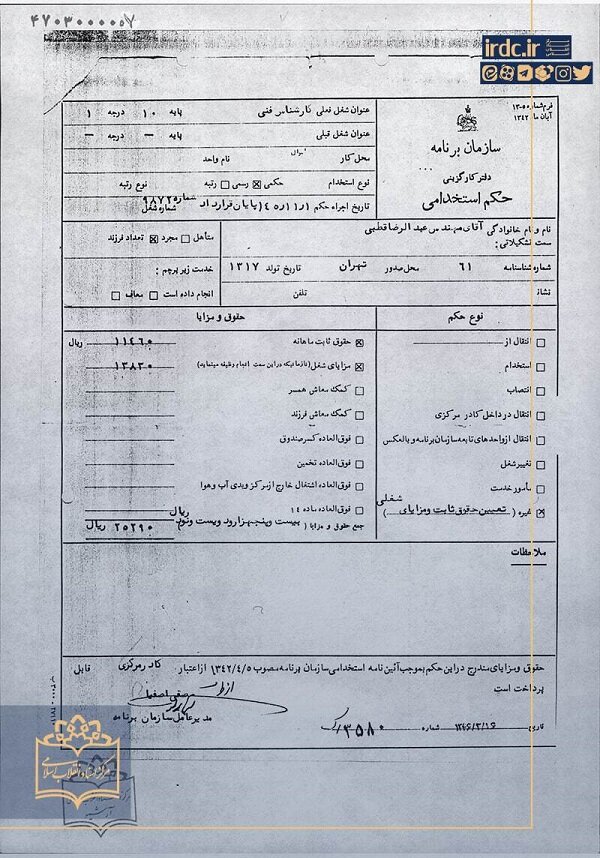 ۴۷۰۳۰۰۰۰۰۷
irdc.ir
فرم شماره ۵-۱۳
آبان ماه ۱۳۴۲
سازمان برنامه
دفتر کارگزینی
حکم استخدامی
عنوان شغل فعلی کارشناس فنی پایه ۱۰ درجه ۱
عنوان شغل قبلی — پایه — درجه —
محل کار نام واحد
نوع استخدام حکمی رسمی رتبه نوع رتبه
تاریخ اجراء حکم شماره شغل ۹۸۷۲
نام و نام خانوادگی آقای مهندس عبدالرضا قطبی
سمت تشکیلاتی:
شماره شناسنامه ۶۱ محل صدور تهران تاریخ تولد ۱۳۱۷
نشانی تلفن
متأهل مجرد تعداد فرزند
خدمت زیر پرچم:
انجام داده است معاف
نوع حکم
انتقال از
استخدام
انتصاب
انتقال در داخل کادر مرکزی
انتقال از واحدهای تابعه سازمان برنامه و بالعکس
تغییر شغل
مأمور خدمت
غیره (تعیین حقوق ثابت و مزایای شغلی)
حقوق و مزایا
حقوق ثابت ماهانه ۱۱۴۶۰ ریال
مزایای شغل (تا زمانیکه در این سمت انجام وظیفه مینماید) ۱۳۸۳۰
کمک معاش همسر
کمک معاش فرزند
فوق‌العاده کسر صندوق
فوق‌العاده تخمین
فوق‌العاده اشتغال خارج از مرکز و بدی آب و هوا
فوق‌العاده ماده ۱۴
جمع حقوق و مزایا (بیست و پنجهزار و دویست و نود ریال ۲۵۲۹۰ ریال
ملاحظات
حقوق و مزایای مندرج در این حکم بموجب آئین نامه استخدامی سازمان برنامه مصوب ۱۳۴۲/۴/۵ از اعتبار کادر مرکزی قابل
پرداخت است
از طرف
صفی اصفیاء
مدیر عامل سازمان برنامه
تاریخ ۱۳۴۶/۳/۱۶ شماره ۳۵۸۰
مرکز اسناد انقلاب اسلامی